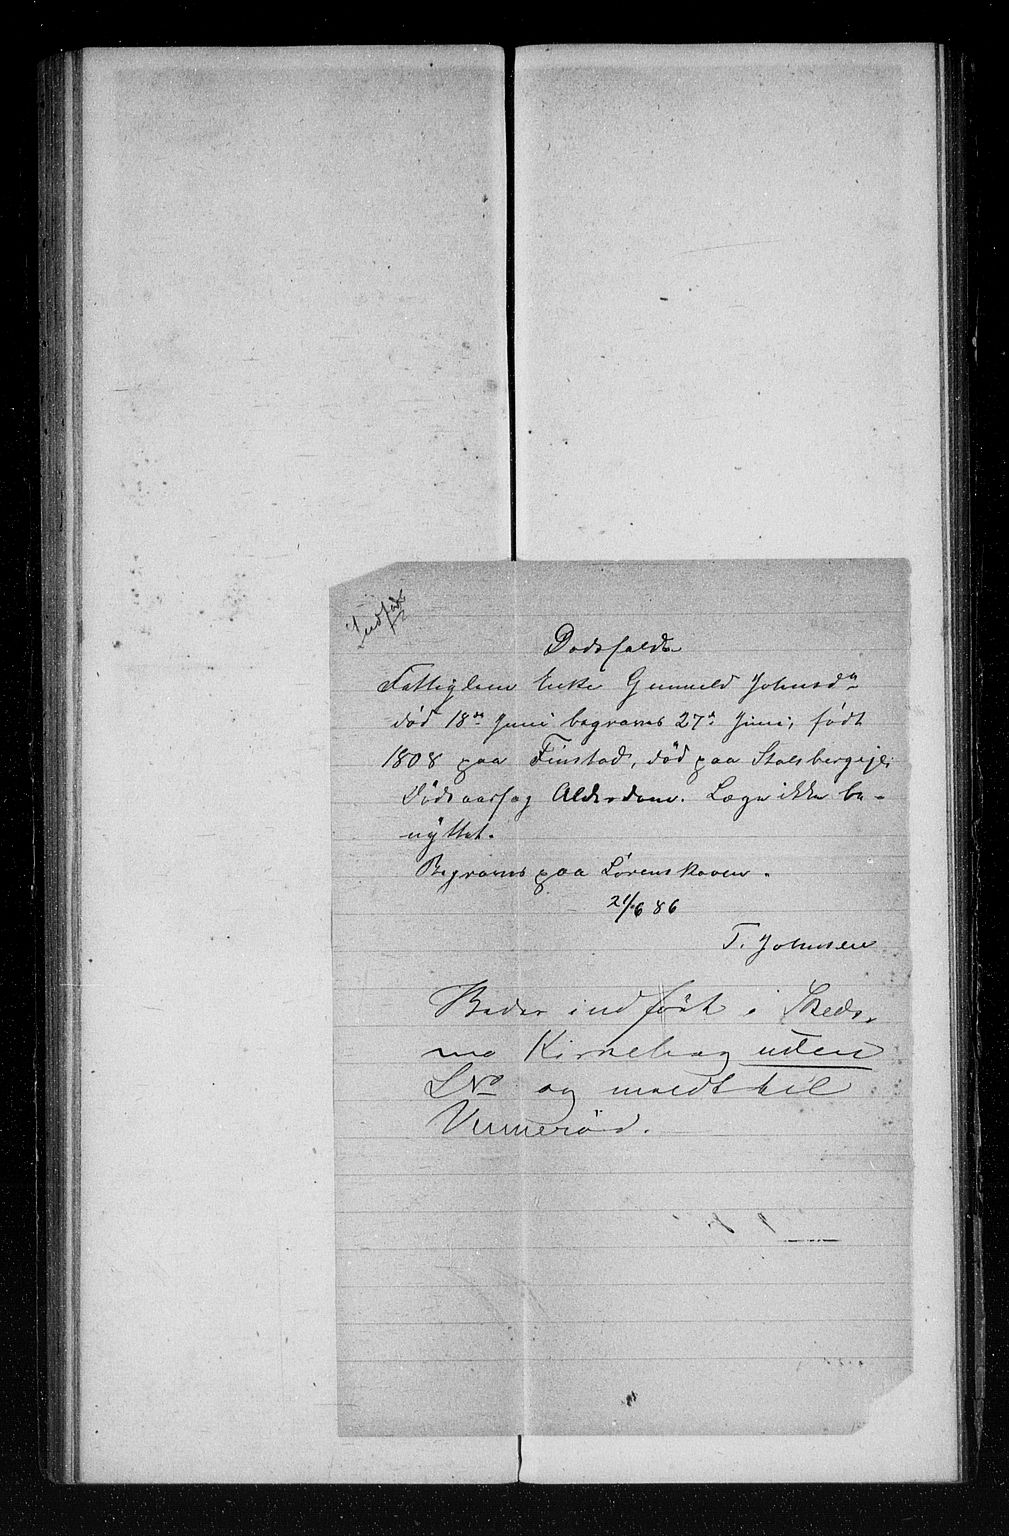 Indført
Dødsfald.
Fattiglem Enke Gunnild Johnsdn
død 18de Juni begraves 27de Juni, født
1808 paa Finstad, død paa Stalsbergejé.
Dødsaarsag Alderdom. Læge ikke be-
nyttet.
Begraves paa Lørenskoven.
21/6 86
T. Johnsen
Bedes indført i Skeds-
mo Kirkebog uden
LNo og meldt til